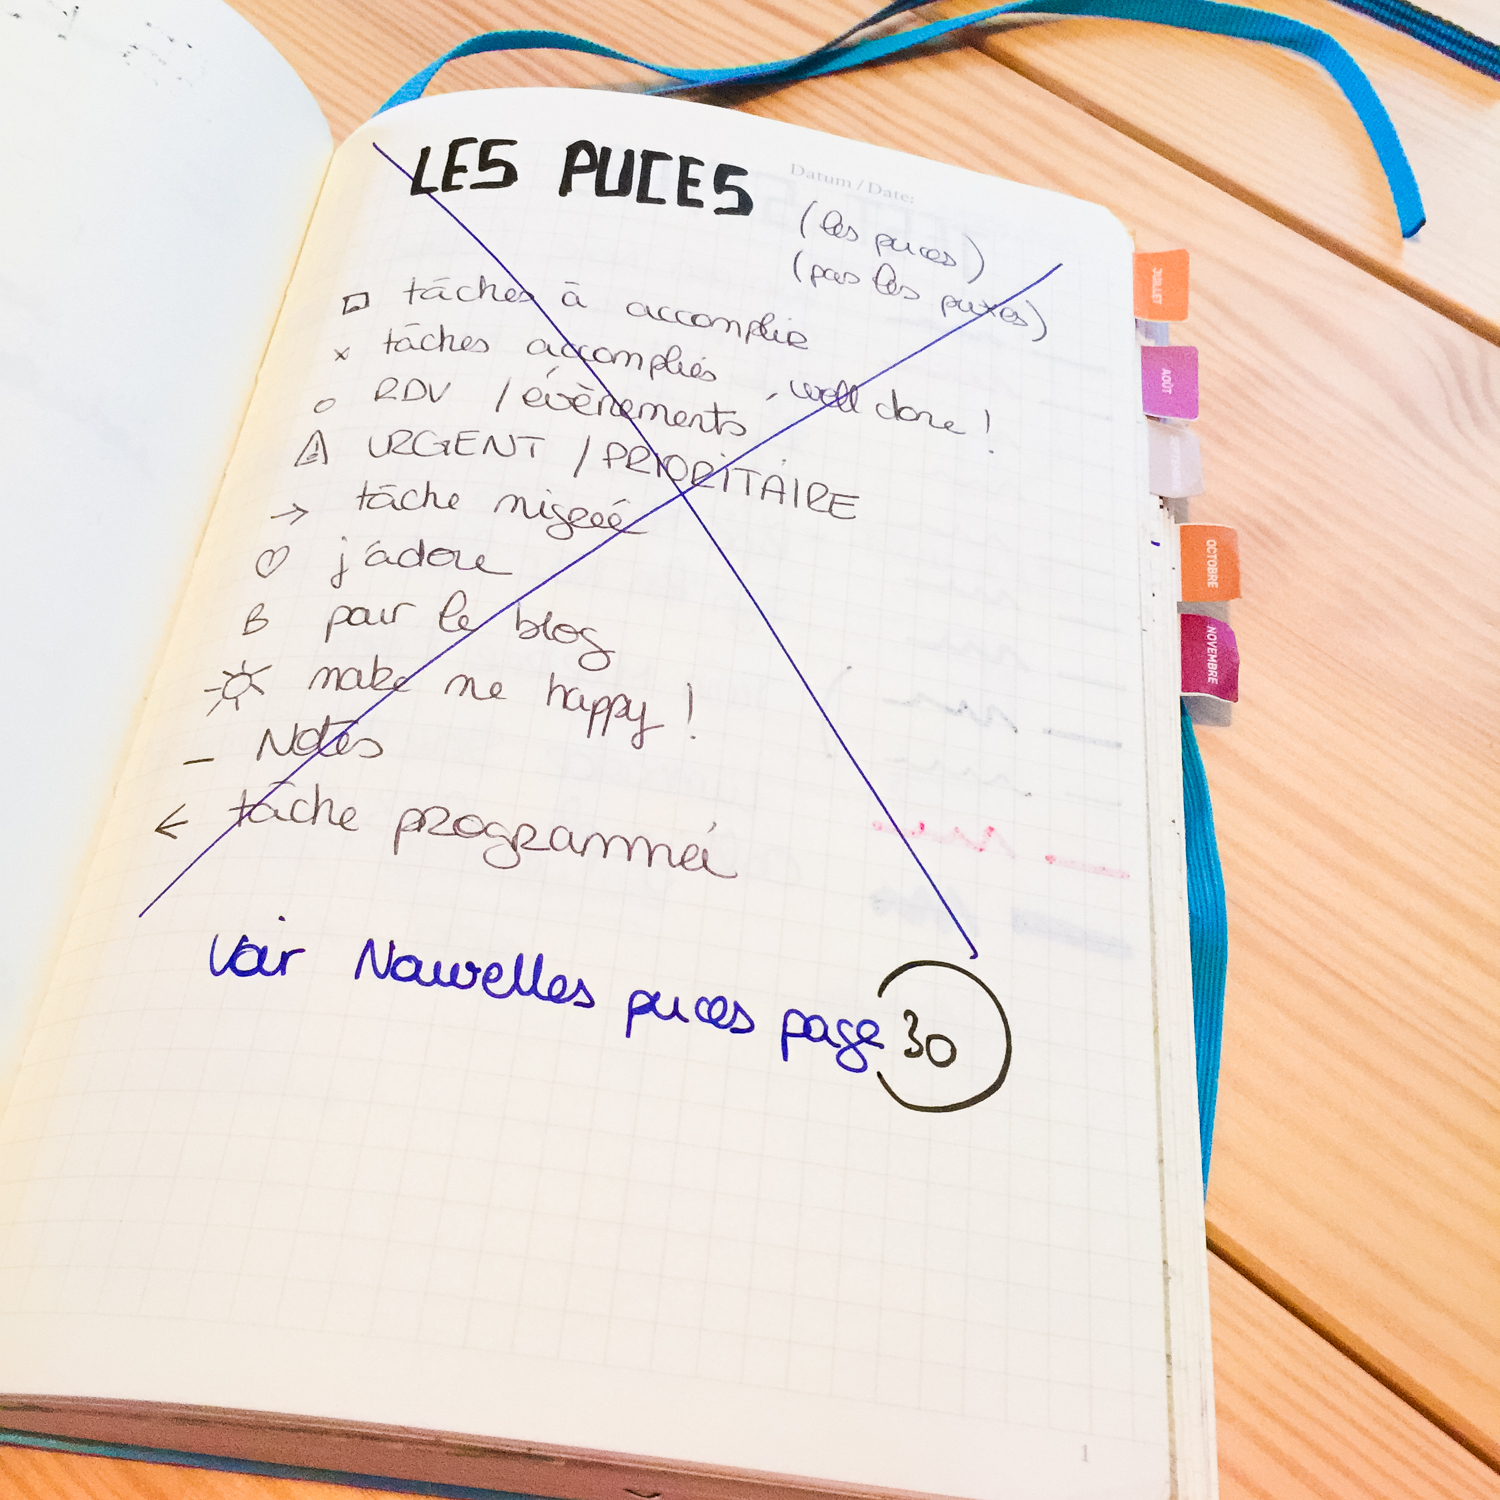 LES PUCES
Datum / Date:
(les puces)
(pas les puxes)
□ tâches à accomplir
x tâches accomplies, well done !
o RDV / évènements
⚠ URGENT / PRIORITAIRE
→ tâche migrée
♡ j'adore
B pour le blog
☼ make me happy !
– Notes
← tâche programmée
voir Nouvelles puces page 30
1
JUILLET
AOÛT
OCTOBRE
NOVEMBRE